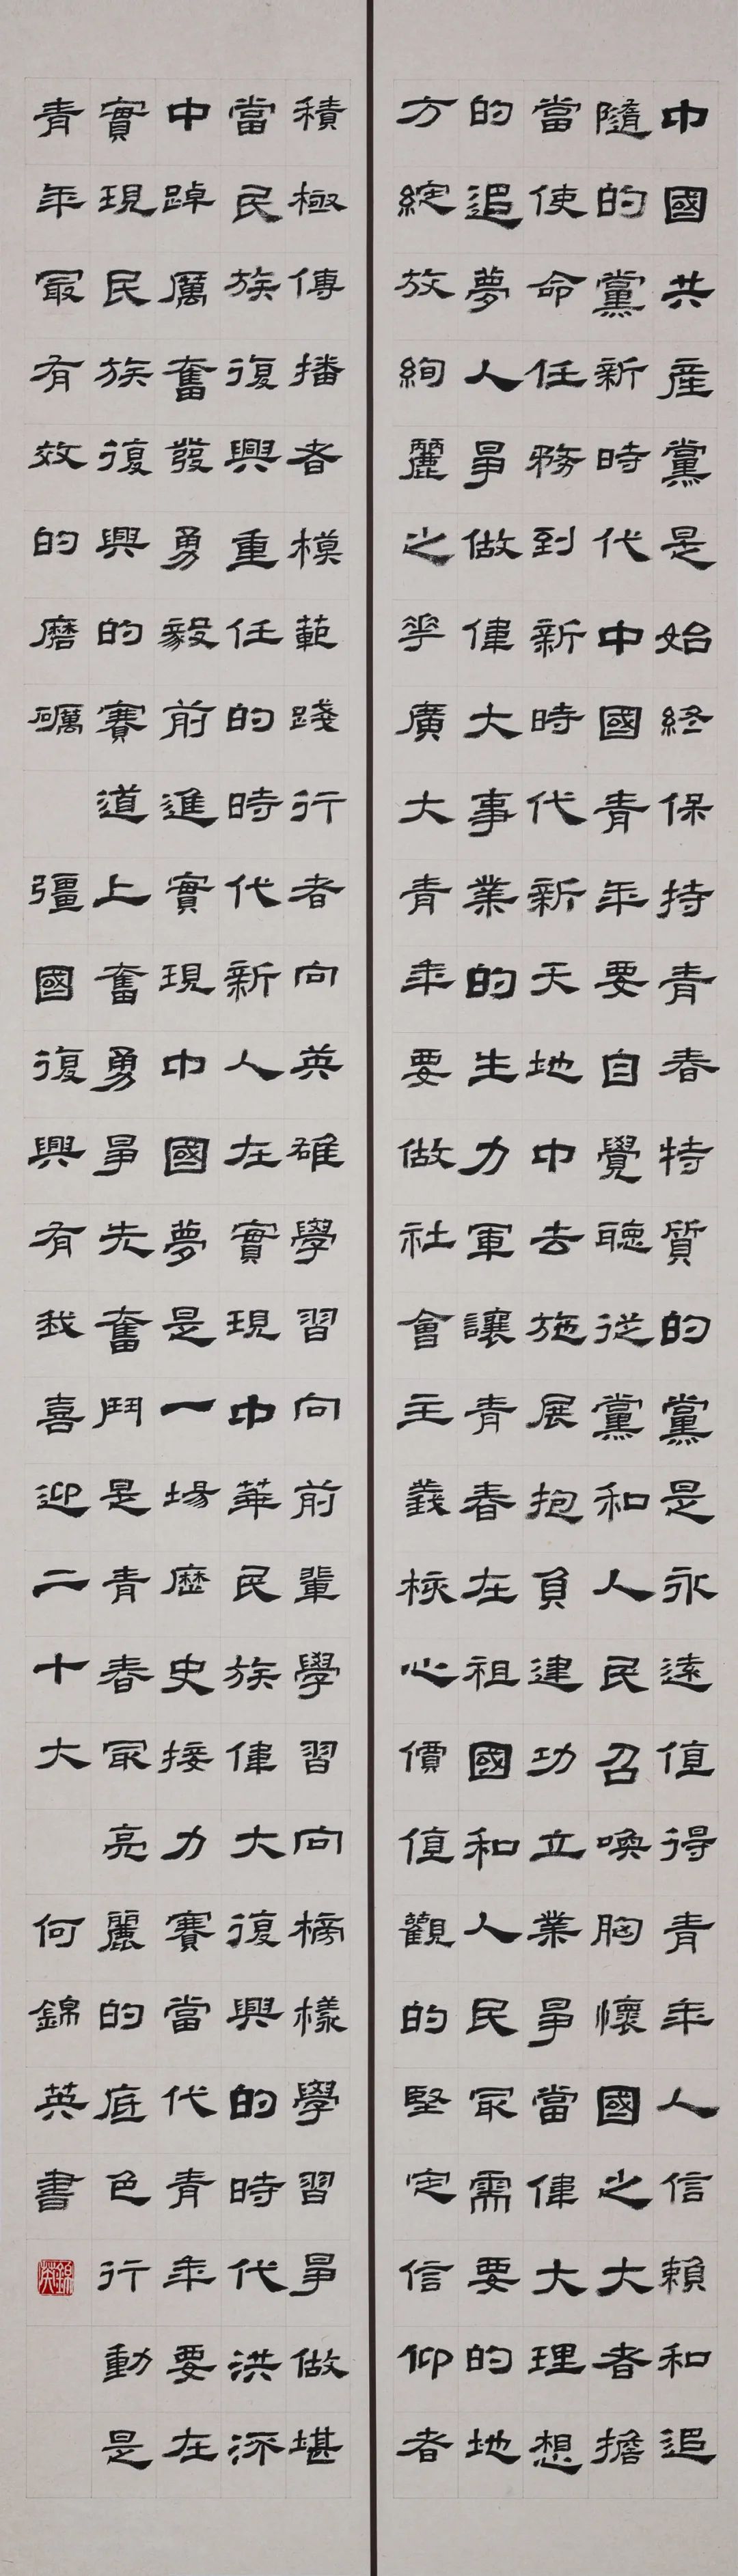 中國共產黨是始終保持青春特質的黨是永遠值得青年人信賴和追
隨的黨新時代中國青年要自覺聽從黨和人民召喚胸懷國之大者擔
當使命任務到新時代新天地中去施展抱負建功立業爭當偉大理想
的追夢人爭做偉大事業的生力軍讓青春在祖國和人民最需要的地
方綻放絢麗之花廣大青年要做社會主義核心價值觀的堅定信仰者
積極傳播者模範踐行者向英雄學習向前輩學習向榜樣學習爭做堪
當民族復興重任的時代新人在實現中華民族偉大復興的時代洪流
中踔厲奮發勇毅前進實現中國夢是一場歷史接力賽當代青年要在
實現民族復興的賽道上奮勇爭先奮鬥是青春最亮麗的底色行動是
青年最有效的磨礪 彊國復興有我喜迎二十大 何錦英書
錦英